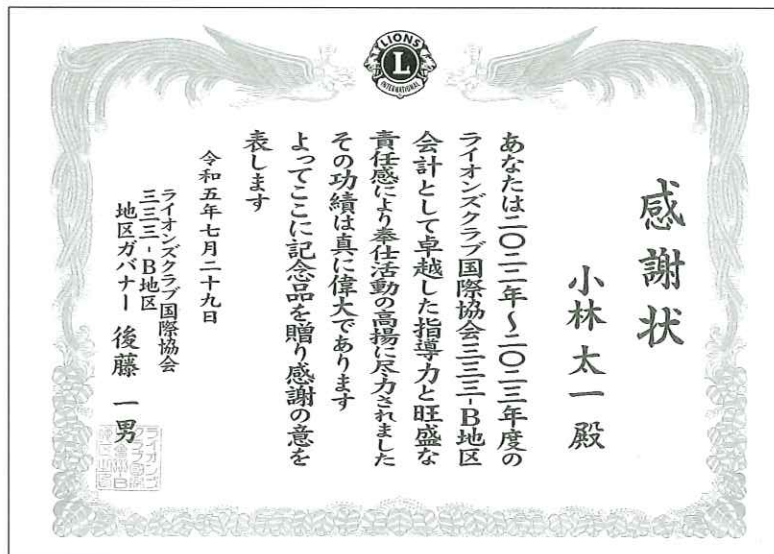 LIONS
L
INTERNATIONAL
感謝状
小林太一殿
あなたは二〇二二年～二〇二三年度の
ライオンズクラブ国際協会三三三-B地区
会計として卓越した指導力と旺盛な
責任感により奉仕活動の高揚に尽力されました
その功績は真に偉大であります
よってここに記念品を贈り感謝の意を
表します
令和五年七月二十九日
ライオンズクラブ国際協会
三三三-B地区
地区ガバナー 後藤 一男